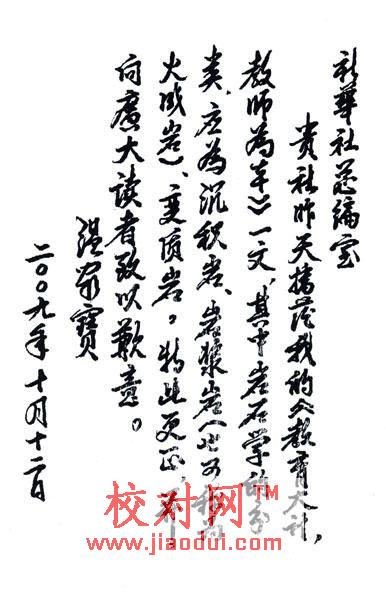 新華社总编室
贵社昨天播发我的《教育大计，
教师为本》一文，其中岩石学的分
类，应为沉积岩、岩浆岩（也可称为
火成岩）、变质岩。特此更正，并
向廣大读者致以歉意。
温家寶
二〇〇九年十月十二日
校对网™
www.jiaodui.com